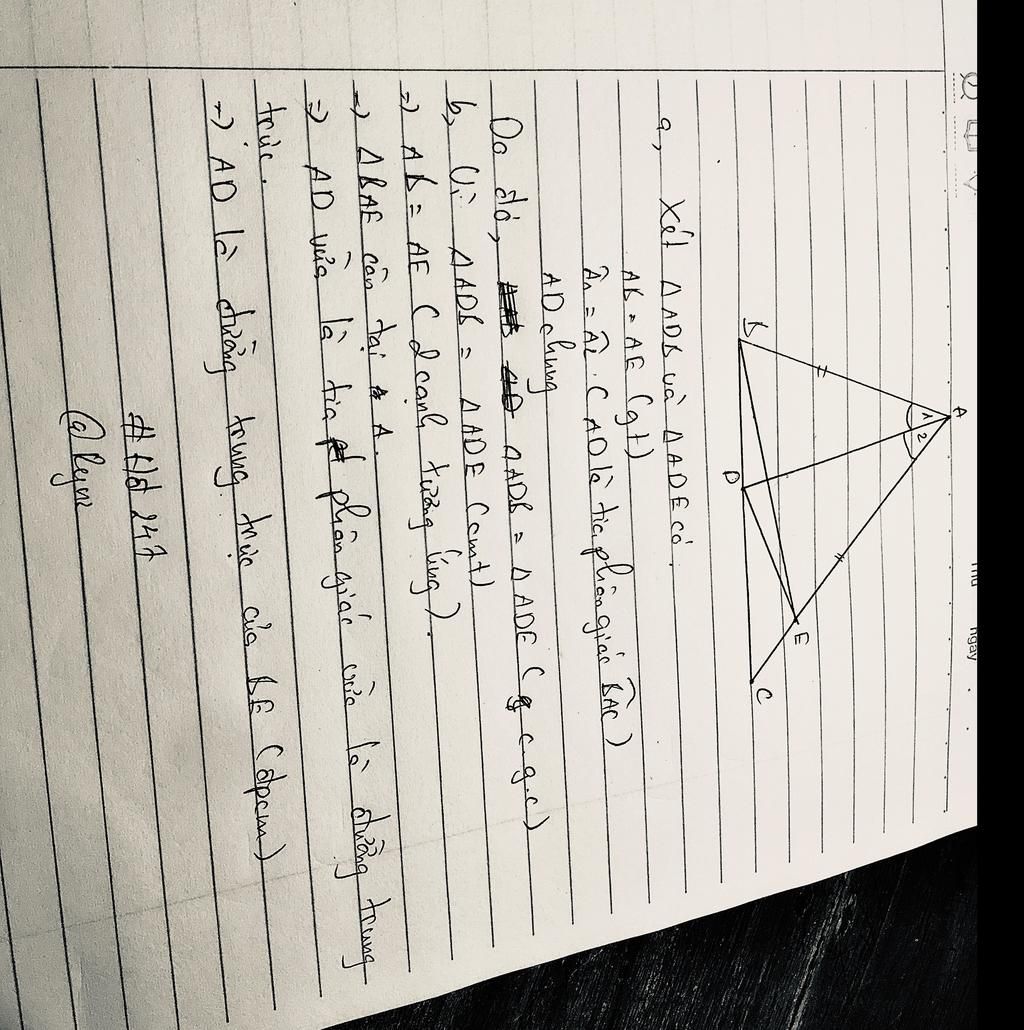 Thứ
Ngày
A
1
2
B
D
E
C
a, Xét ΔADB và ΔADE có
AB = AE (gt)
Â1 = Â2 (AD là tia phân giác BAC)
AD chung
Do đó, ΔADB = ΔADE (c.g.c)
b, Vì ΔADB = ΔADE (cmt)
=> AB = AE (2 cạnh tương ứng).
=> ΔBAE cân tại A.
=> AD vừa là tia phân giác vừa là đường trung
trực.
=> AD là đường trung trực của BE (đpcm)
#Hd247